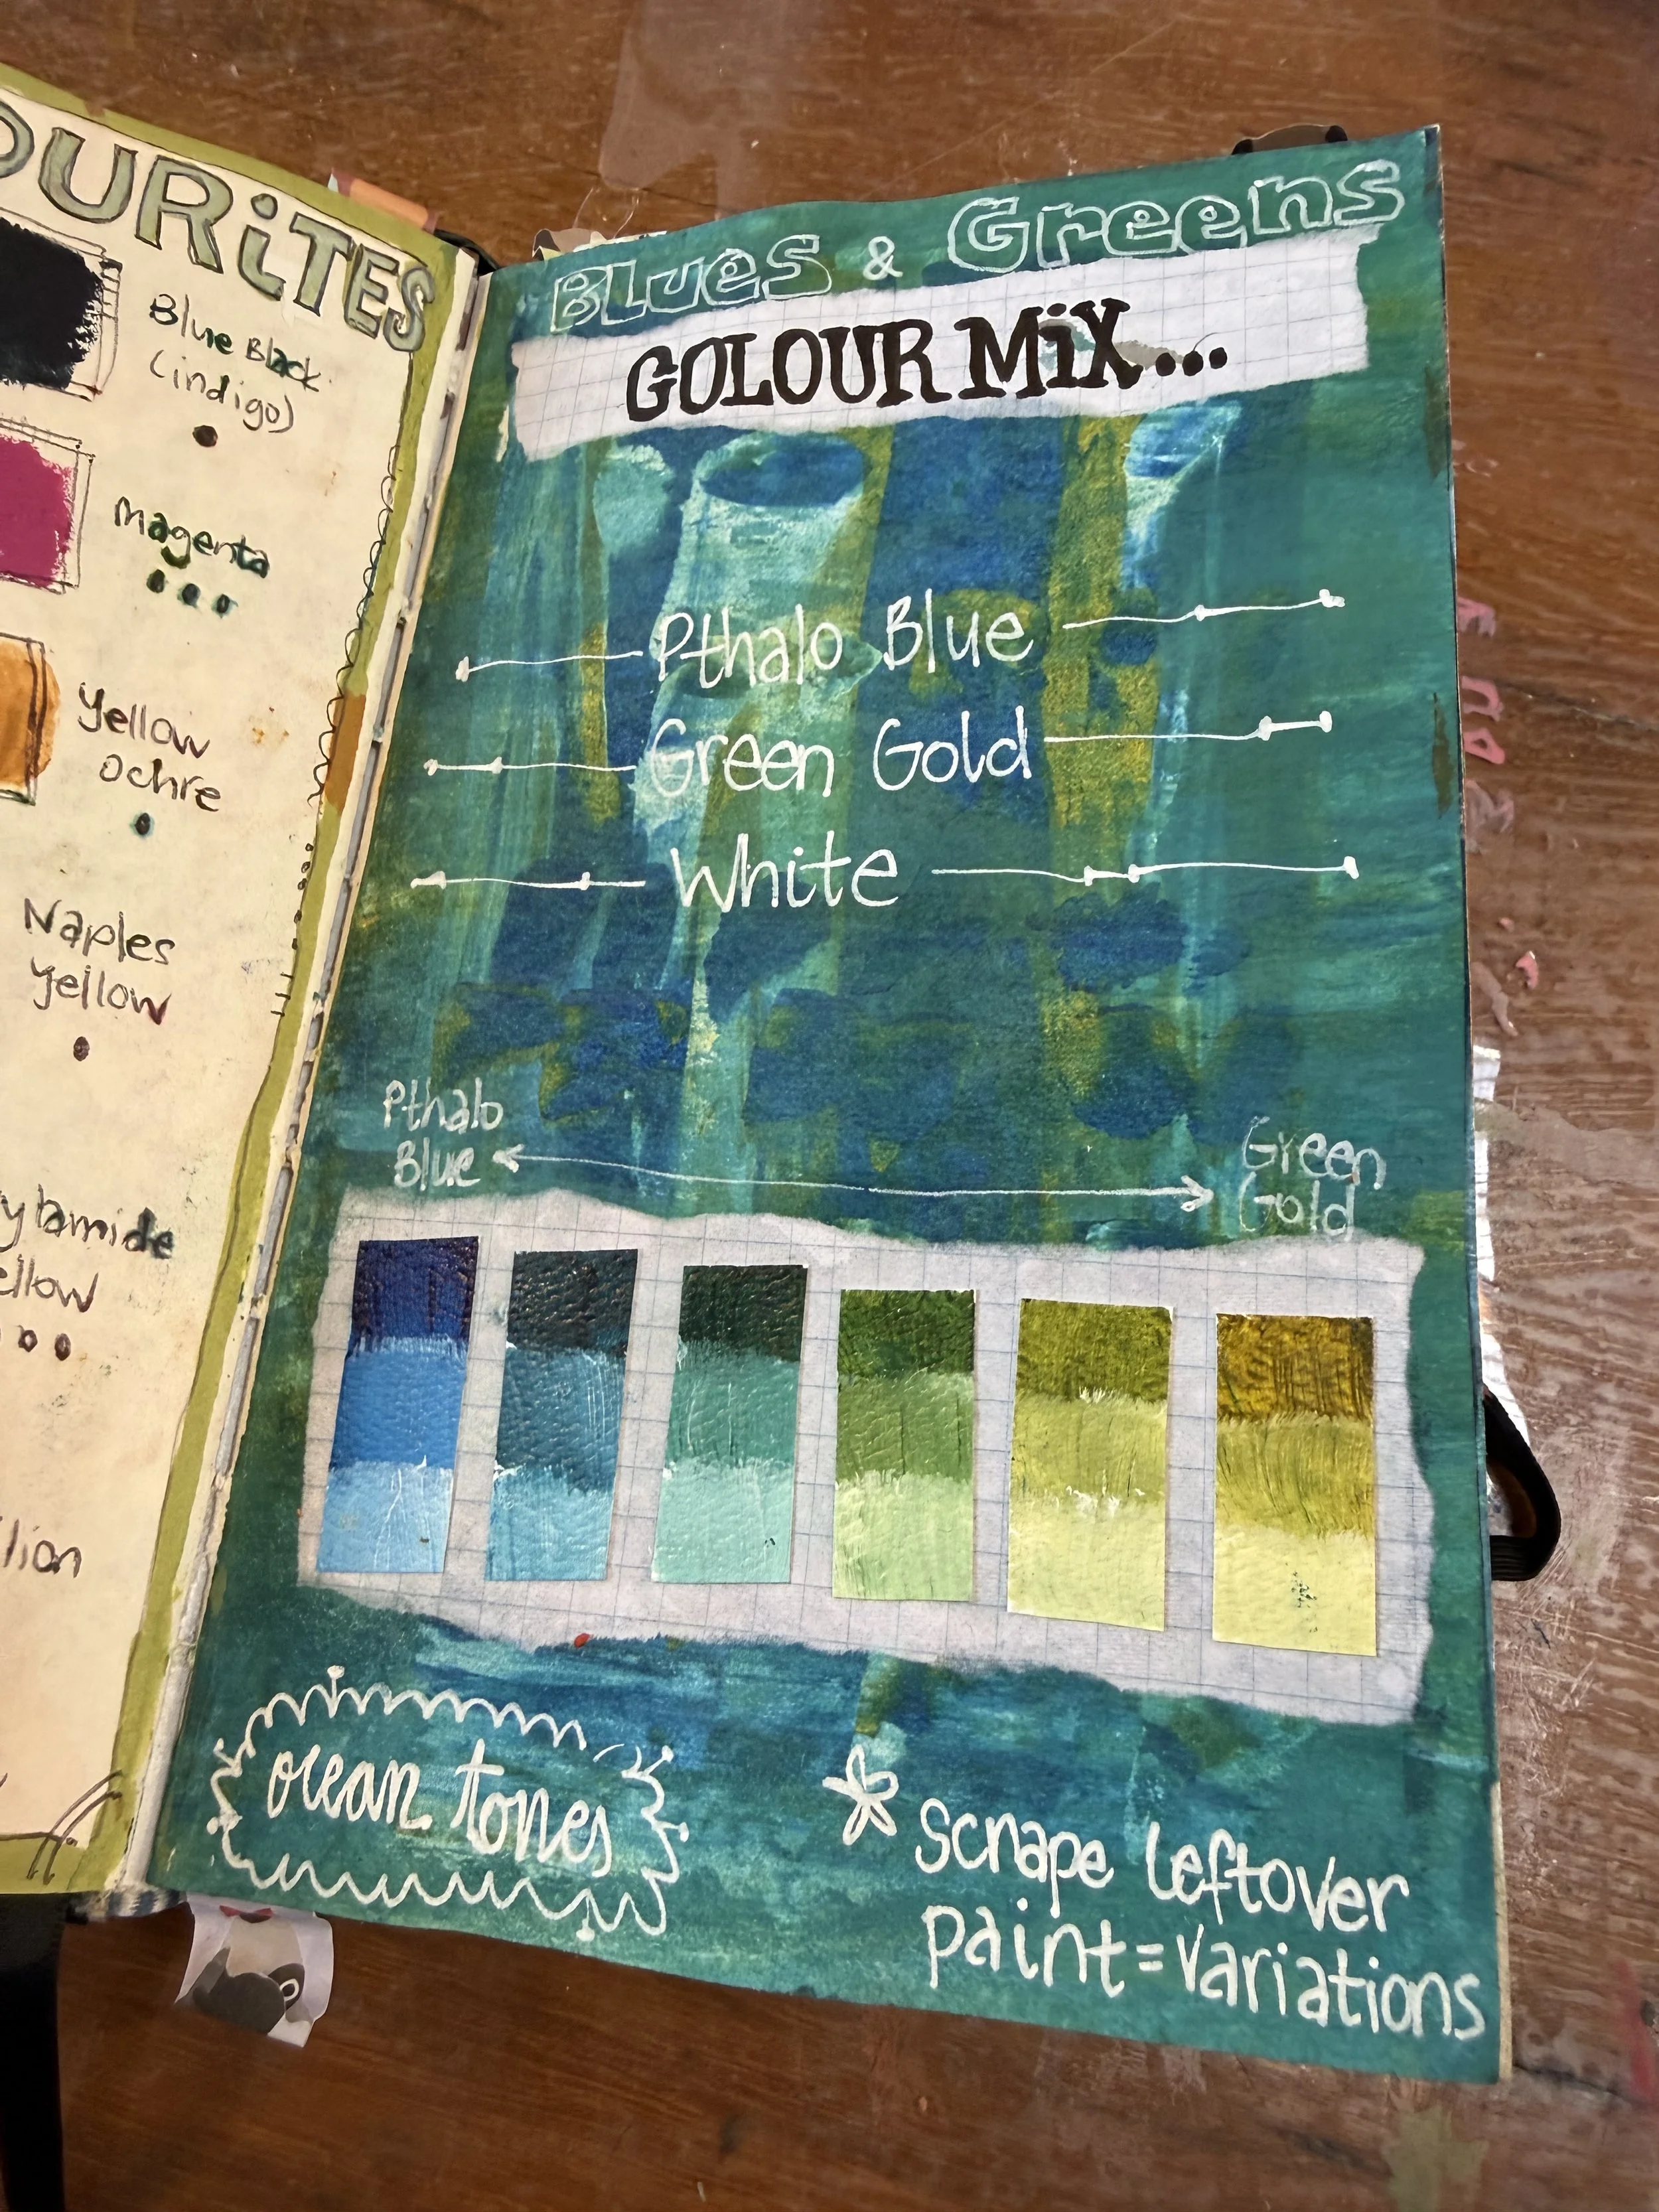 OURiTES
Blue Black
(indigo)
Magenta
Yellow
ochre
Naples
Yellow
Blues & Greens
COLOUR MiX...
Pthalo Blue
Green Gold
White
Pthalo
Blue
Green
Gold
ocean tones
scrape leftover
paint=variations